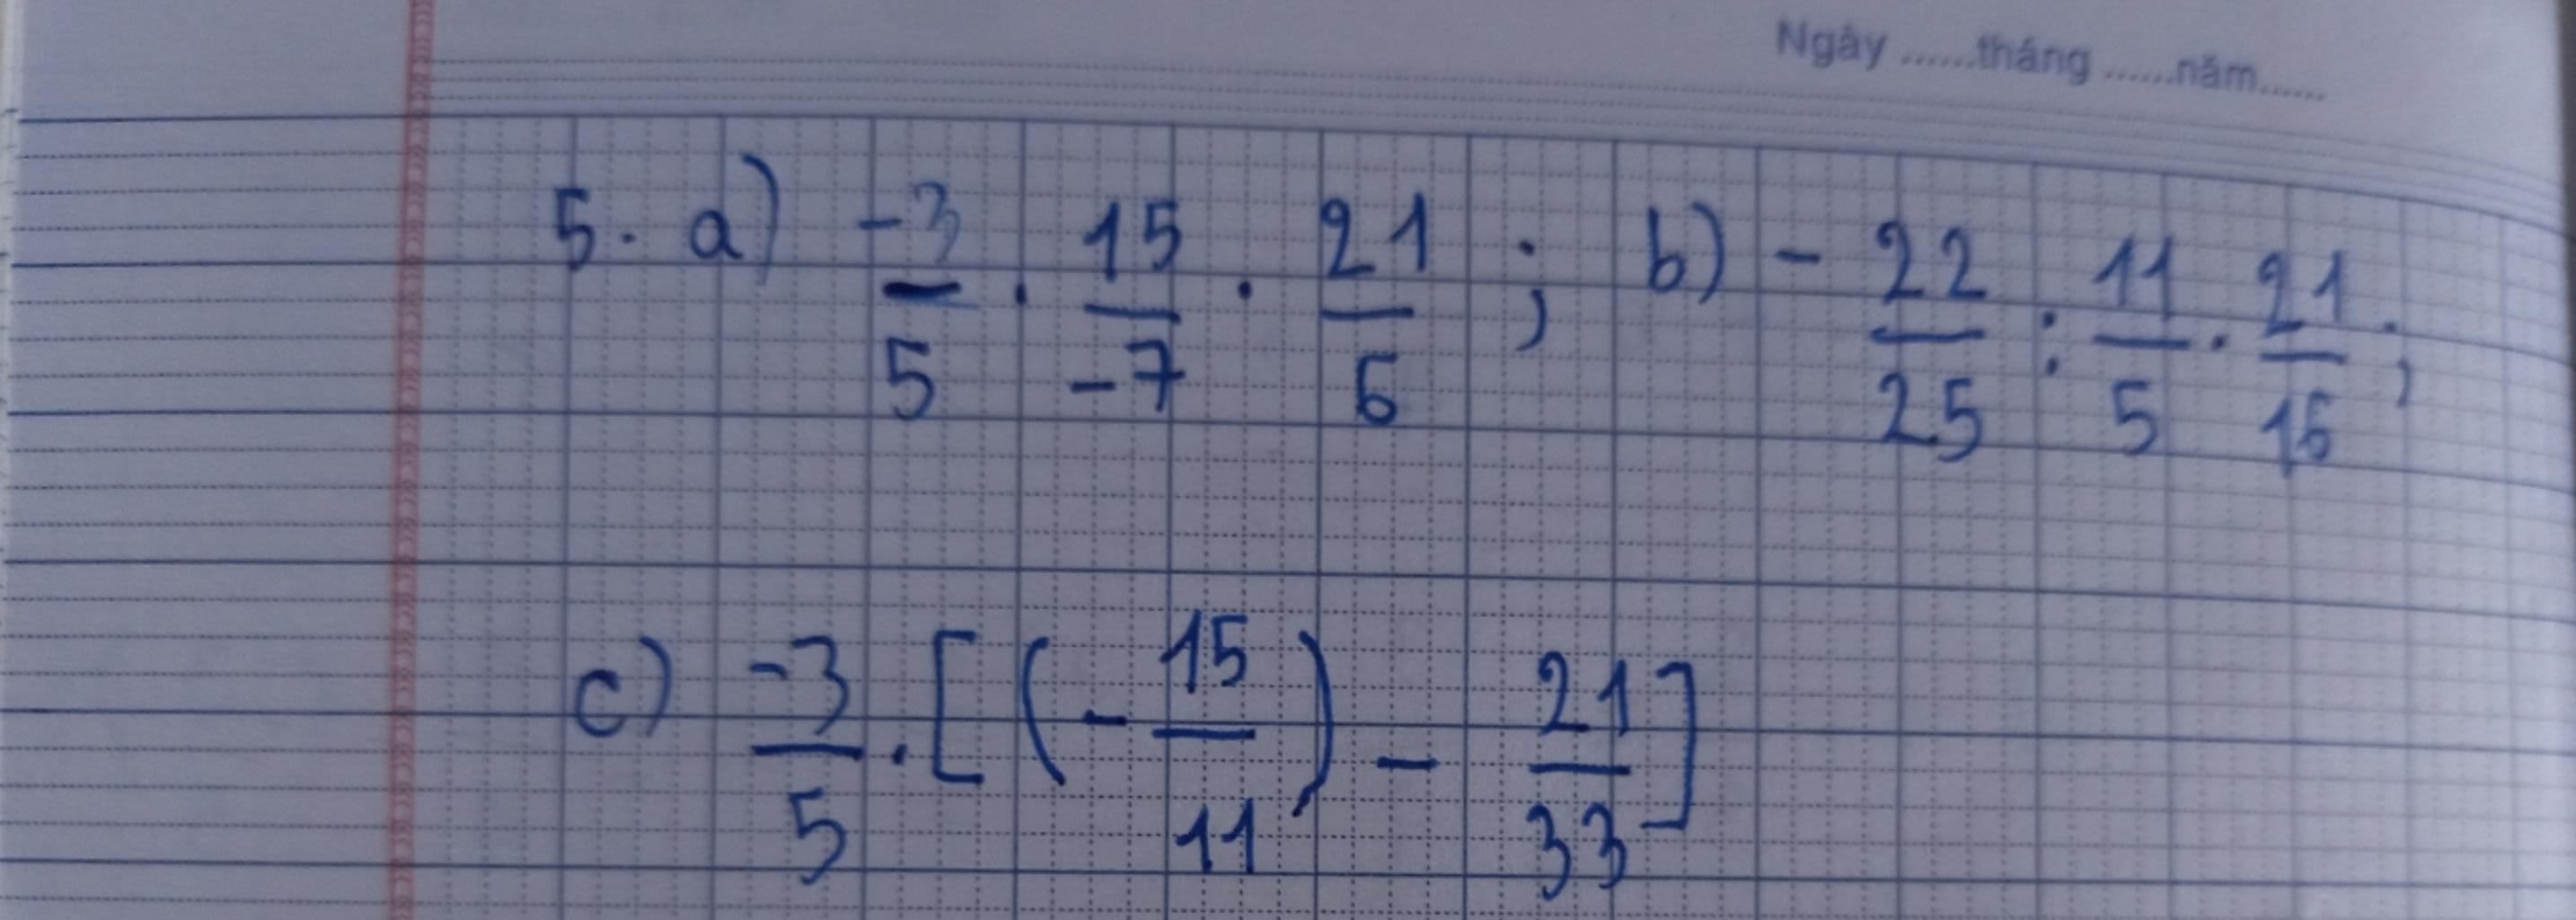 Ngày ......tháng ......năm......
5. a) -3/5 . 15/-7 . 21/6 ; b) - 22/25 : 11/5 . 21/15 ;
c) -3/5 . [(- 15/11) - 21/33]